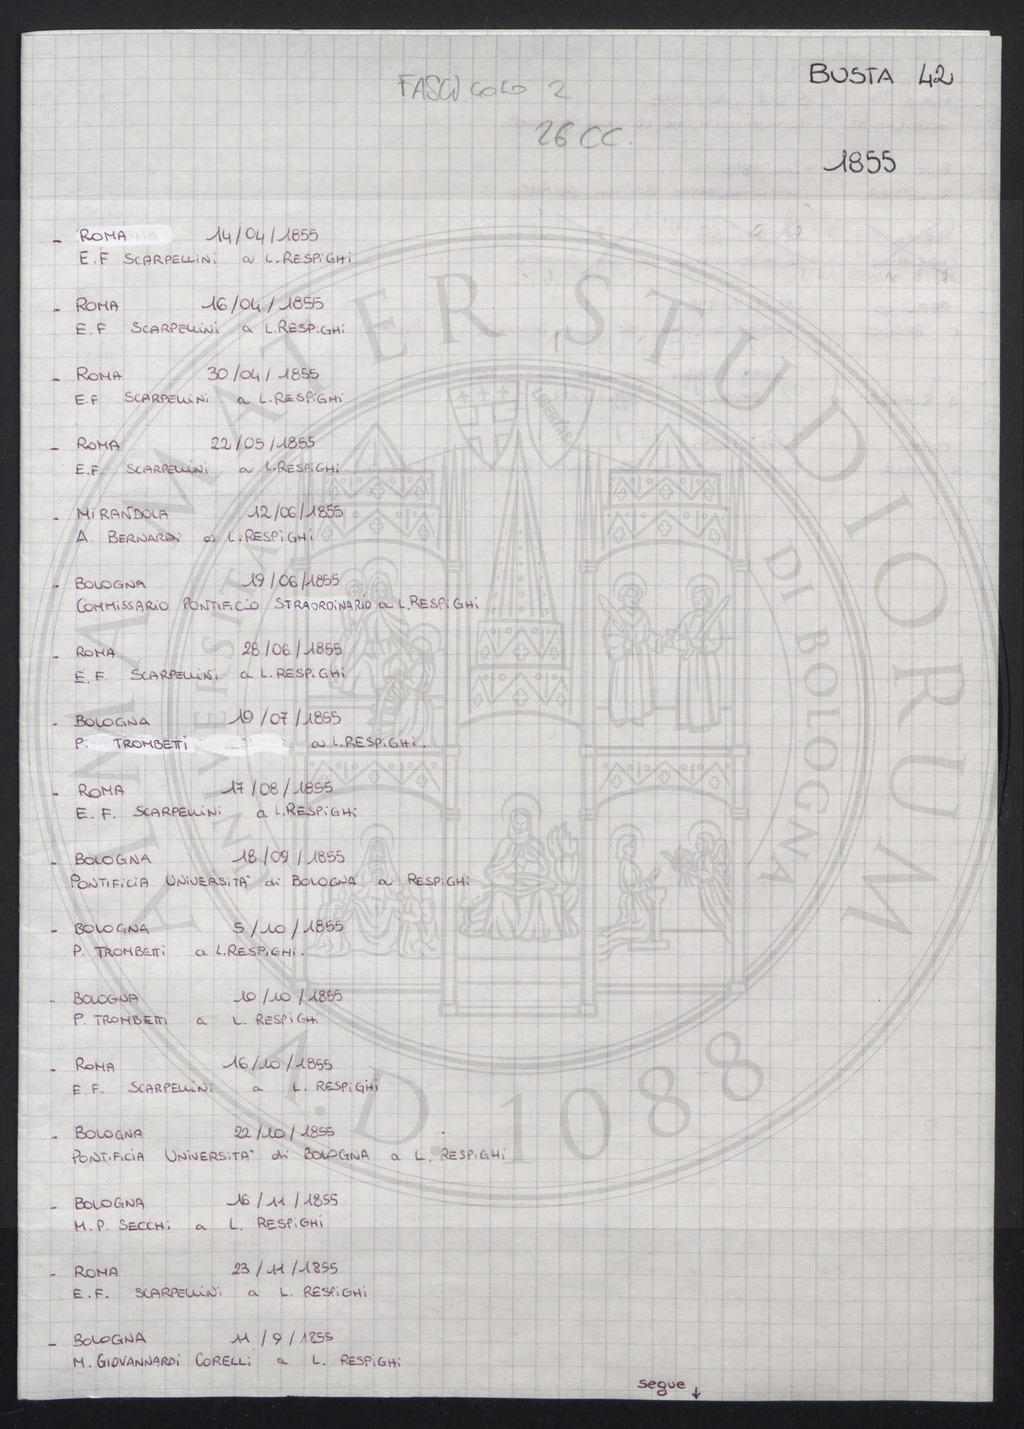 BUSTA 42
FASCICOLO 2
26 CC.
1855
- ROMA 14/04/1855
E.F SCARPELLINI a L.RESPIGHI
- ROMA 16/04/1855
E.F SCARPELLINI a L.RESPIGHI
- ROMA 30/04/1855
E.F SCARPELLINI a L.RESPIGHI
- ROMA 22/05/1855
E.F. SCARPELLINI a L.RESPIGHI
- MIRANDOLA 12/06/1855
A BERNARDI a L.RESPIGHI
- BOLOGNA 19/06/1855
COMMISSARIO PONTIFICIO STRAORDINARIO a L.RESPIGHI
- ROMA 28/06/1855
E.F. SCARPELLINI a L.RESPIGHI
- BOLOGNA 19/07/1855
P. TROMBETTI a L.RESPIGHI.
- ROMA 17/08/1855
E.F. SCARPELLINI a L.RESPIGHI
- BOLOGNA 18/09/1855
PONTIFICIA UNIVERSITA' di BOLOGNA a RESPIGHI
- BOLOGNA 5/10/1855
P. TROMBETTI a L.RESPIGHI.
- BOLOGNA 10/10/1855
P. TROMBETTI a L. RESPIGHI
- ROMA 16/10/1855
E.F. SCARPELLINI a L. RESPIGHI
- BOLOGNA 22/10/1855
PONTIFICIA UNIVERSITA' di BOLOGNA a L. RESPIGHI
- BOLOGNA 16/11/1855
M.P. SECCHI a L. RESPIGHI
- ROMA 23/11/1855
E.F. SCARPELLINI a L. RESPIGHI
- BOLOGNA 11/9/1855
M. GIOVANNARDI CORELLI a L. RESPIGHI
segue ↓
ALMA MATER STUDIORUM
UNIVERSITÀ DI BOLOGNA
LIBERTAS
A.D. 1088